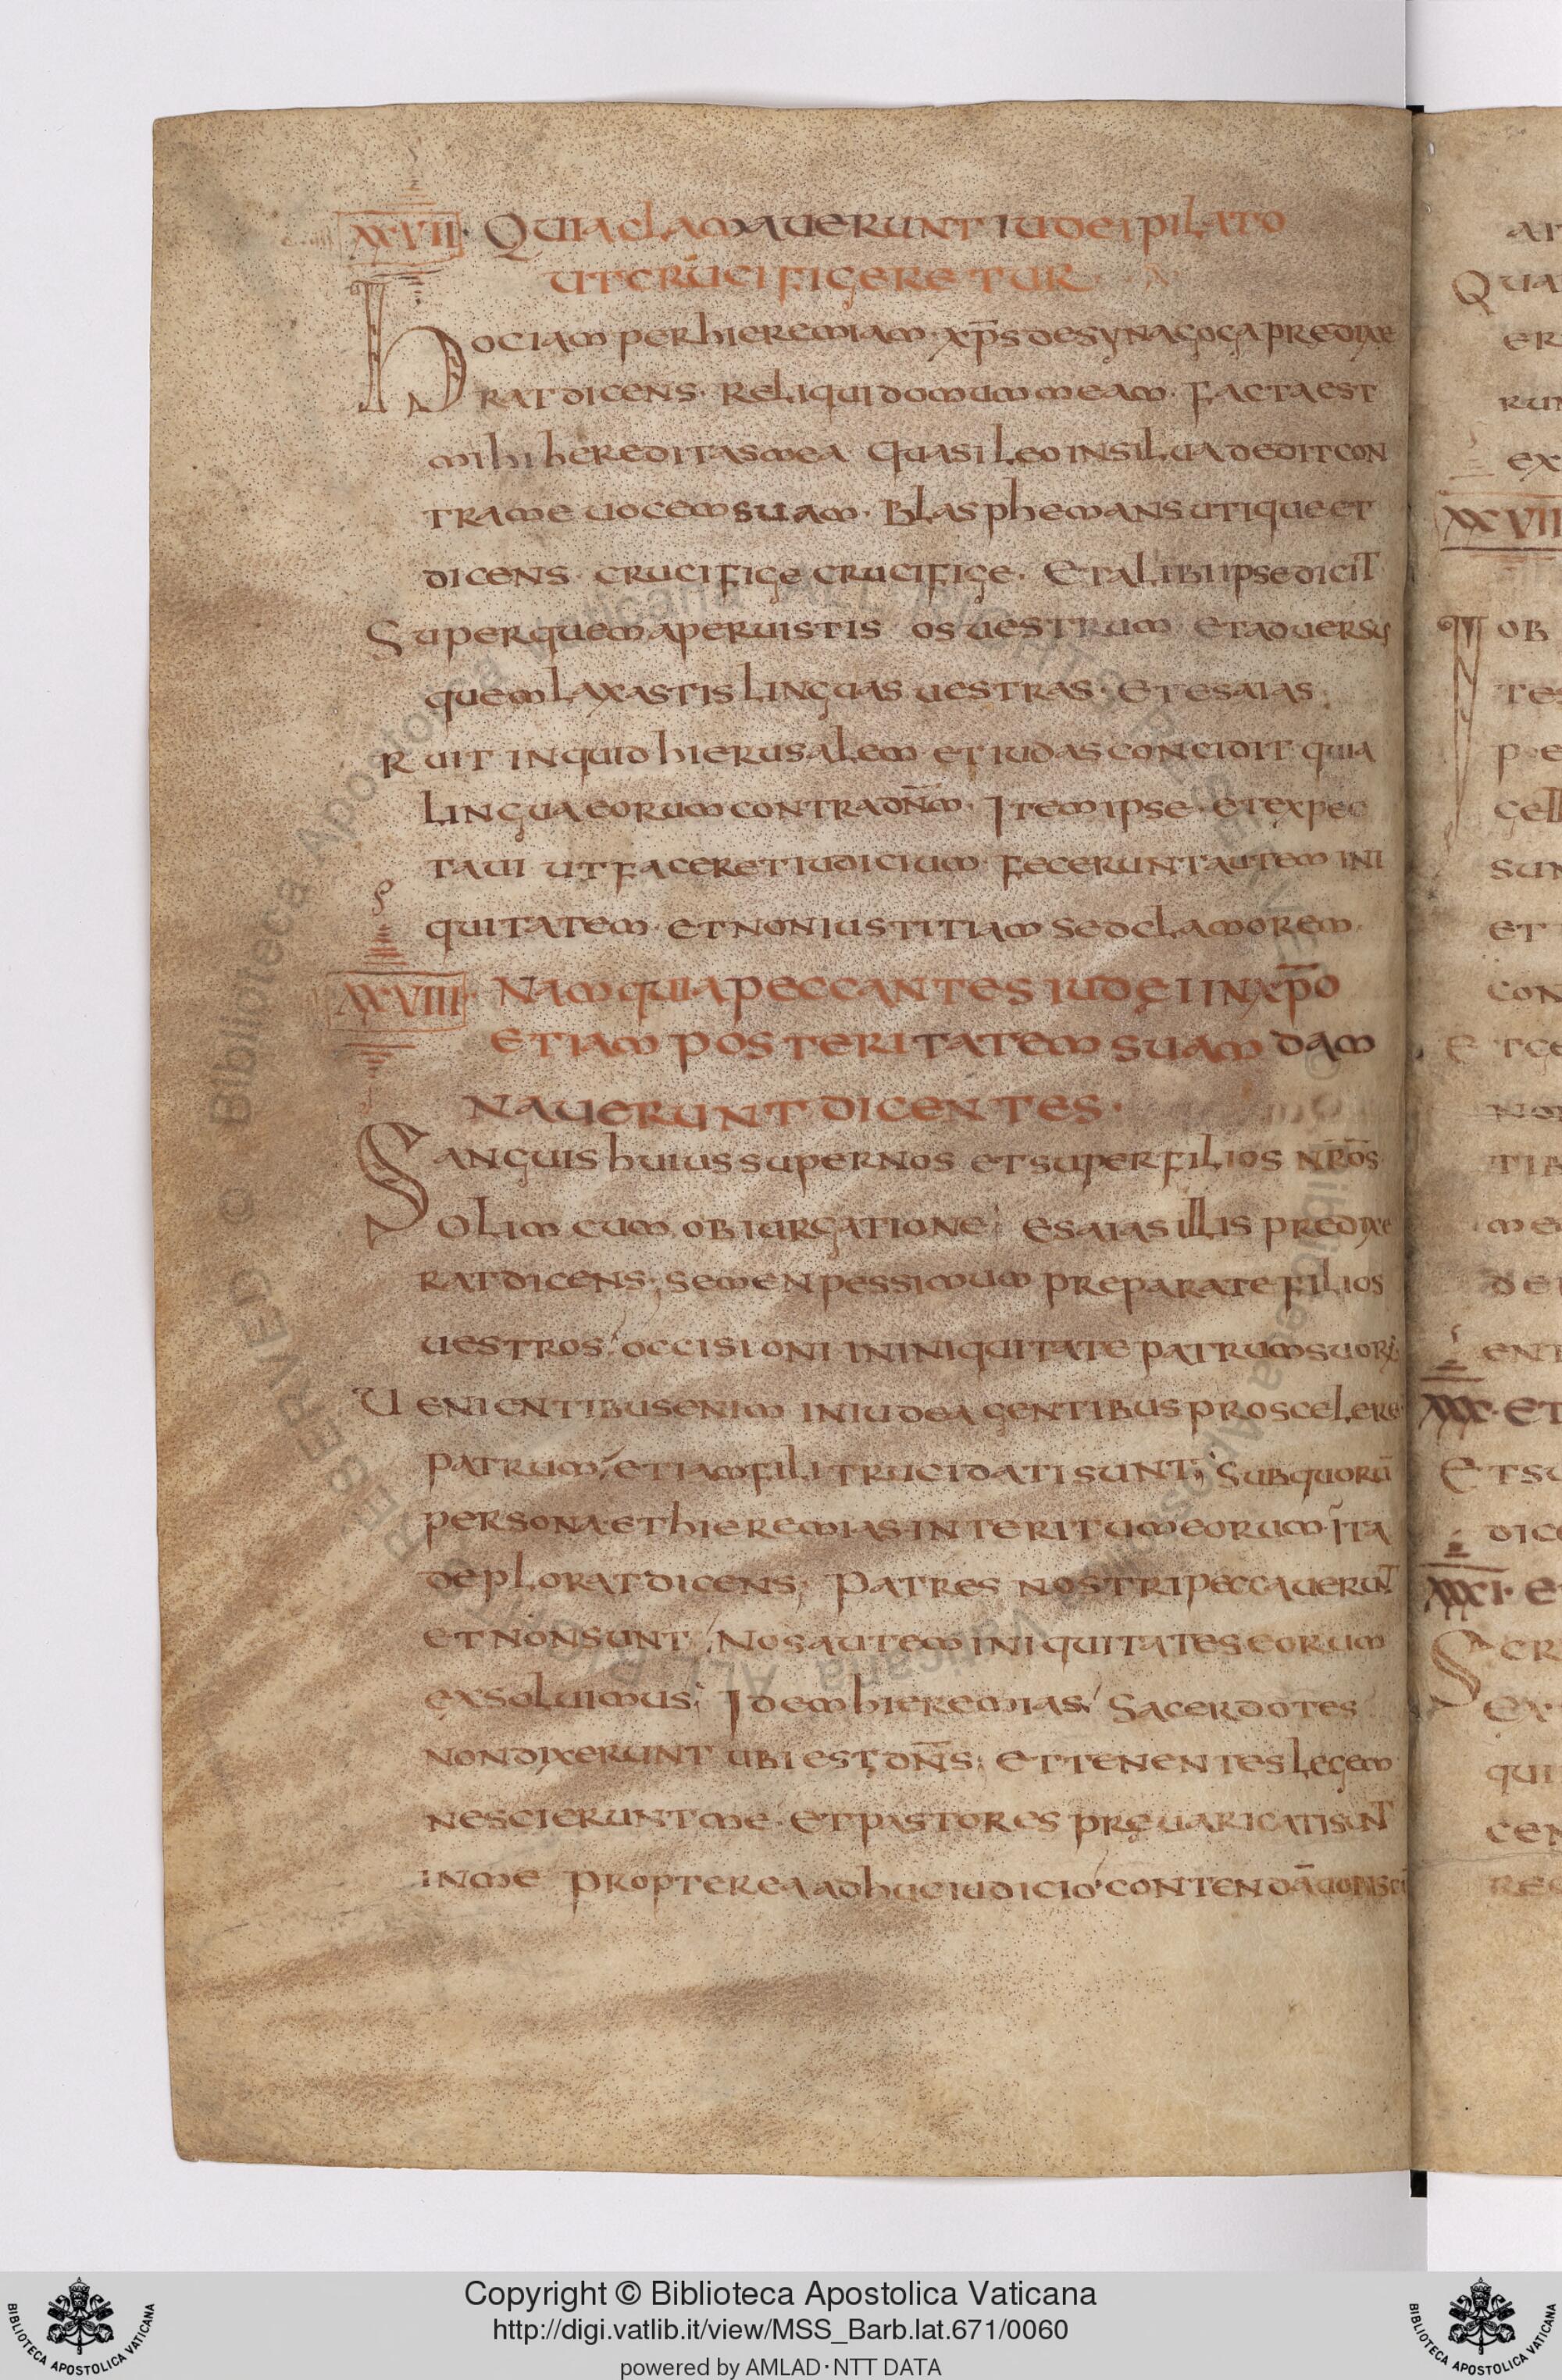 XXVII · QUIA CLAMAUERUNT IUDEI PILATO
UT CRUCIFIGERETUR
HOC IAM PER HIEREMIAM · XP̅S DE SYNAGOGA PREDIXE
RAT DICENS · RELIQUI DOMUM MEAM · FACTA EST
MIHI HEREDITAS MEA QUASI LEO IN SILUA DEDIT CON
TRA ME UOCEM SUAM · BLASPHEMANS UTIQUE ET
DICENS · CRUCIFIGE CRUCIFIGE · ET ALIBI IPSE DICIT
SUPER QUEM APERUISTIS OS UESTRUM ET ADUERSUS
QUEM LAXASTIS LINGUAS UESTRAS · ET ESAIAS
RUIT INQUID HIERUSALEM ET IUDAS CONCIDIT QUIA
LINGUA EORUM CONTRA DN̅M · ITEM IPSE · ET EXPEC
TAUI UT FACERET IUDICIUM · FECERUNT AUTEM INI
QUITATEM · ET NON IUSTITIAM SED CLAMOREM ·
XXVIII · NAM QUIA PECCANTES IUDĘI IN XP̅O
ETIAM POSTERITATEM SUAM DAM
NAUERUNT DICENTES ·
SANGUIS HUIUS SUPER NOS ET SUPER FILIOS NR̅OS ·
OLIM CUM OBIURGATIONE ; ESAIAS ILLIS PREDIXE
RAT DICENS ; SEMEN PESSIMUM PREPARATE FILIOS
UESTROS OCCISIONI IN INIQUITATE PATRUM SUORṼ
UENIENTIBUS ENIM IN IUDEA GENTIBUS PRO SCELERE
PATRUM ETIAM FILI TRUCIDATI SUNT ; SUB QUORŪ
PERSONA ET HIEREMIAS INTERITUM EORUM ITA
DEPLORAT DICENS ; PATRES NOSTRI PECCAUERUNT
ET NON SUNT / NOS AUTEM INIQUITATES EORUM
EXSOLUIMUS ; IDEM HIEREMIAS / SACERDOTES
NON DIXERUNT UBI EST DN̅S ; ET TENENTES LEGEM
NESCIERUNT ME · ET PASTORES PRĘUARICATI SUNT
IN ME PROPTEREA ADHUC IUDICIO CONTENDĀ UOBISCŪ
Copyright © Biblioteca Apostolica Vaticana
http://digi.vatlib.it/view/MSS_Barb.lat.671/0060
powered by AMLAD·NTT DATA
BIBLIOTECA APOSTOLICA VATICANA
BIBLIOTECA APOSTOLICA VATICANA